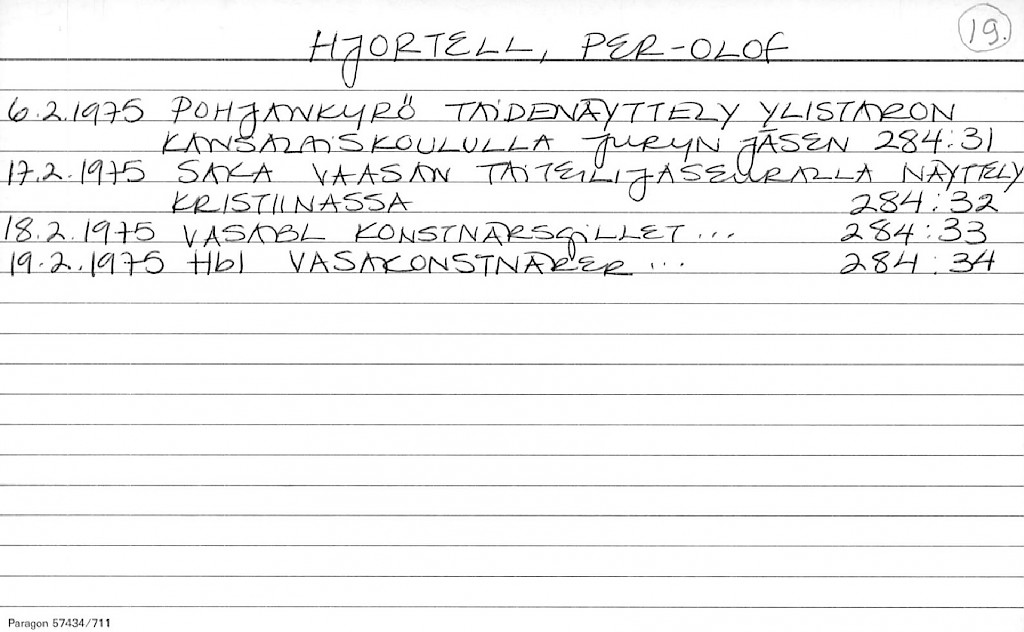 19.
HJORTELL, PER-OLOF
6.2.1975 POHJANKYRÖ TAIDENÄYTTELY YLISTARON
KANSALAISKOULULLA JURYN JÄSEN 284:31
17.2.1975 SAKA VAASAN TAITEILIJASEURALLA NÄYTTELY
KRISTIINASSA 284:32
18.2.1975 VASABL KONSTNÄRSGILLET... 284:33
19.2.1975 Hbl VASAKONSTNÄRER... 284:34
Paragon 57434/711